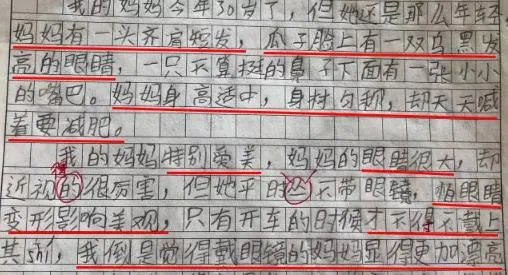 我的妈妈今年30岁了，但她还是那么年轻
妈妈有一头齐肩短发，瓜子脸上有一双乌黑发
亮的眼睛，一只不算挺的鼻子下面有一张小小
的嘴巴。妈妈身高适中，身材匀称，却天天喊
着要减肥。
我的妈妈特别爱美，妈妈的眼睛很大，却
得
近视的很厉害，但她平时从不带眼镜，怕眼睛
变形影响美观，只有开车的时候才不得不戴上
其shí，我倒是觉得戴眼镜的妈妈显得更加漂亮